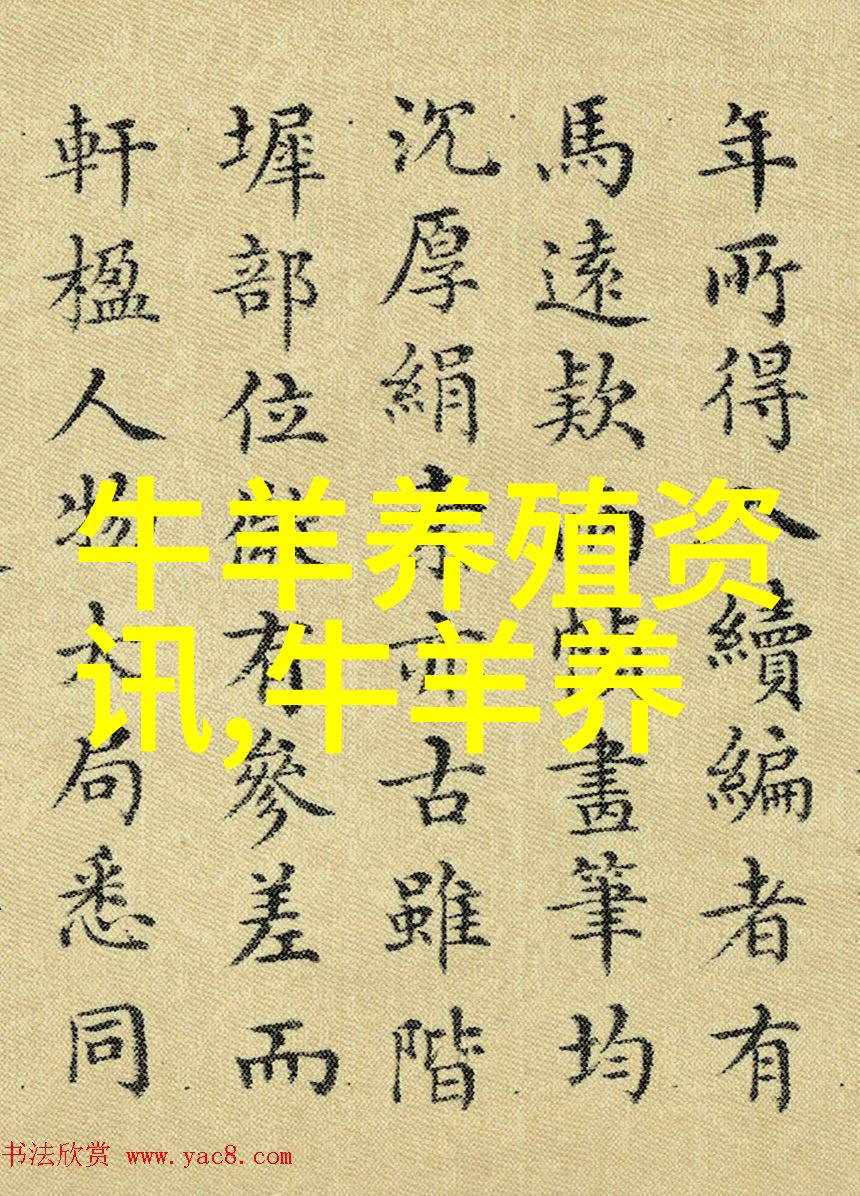 年所得入續編者有
馬遠款畫筆均
沉厚絹素亦古雖階
墀部位微有參差而
軒楹人物大局悉同
牛羊养殖资
讯,牛羊养
书法欣赏 www.yac8.com